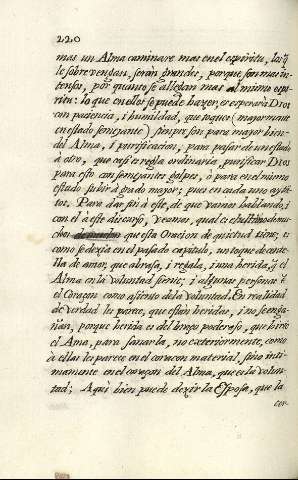 220
mas un Alma caminare mas en el espiritu, los q̃
le sobrevengan, serán grandes, porque son mas in-
tensos, por quanto se allegan mas al mismo espi-
ritu: lo que en ellos se puede hazer, es esperar à Dios
con paciencia, i humildad, que toques (mayormente
en estado semejante) siempre son para mayor bien
del Alma, i purificacion, para pasar de un estado
à otro, que casi es regla ordinaria, purificar Dios
para esto con semejantes golpes, ò para en el mismo
estado subir à grado mayor; pues en cada uno ay dis-
tos. Para dar fin à este, de que vamos hablando, i
con él à este discurso, veamos, qual es el ultimo de mu-
chos que esta Oracion de quietud tiene; es
como se dezia en el pasado capitulo, un toque de cente-
lla de amor, que abrasa, i regala, i una herida, q̃ el
Alma en la voluntad siente; i algunas personas en
el Corazon como asiento de la voluntad. En realidad
de verdad les parece, que están heridas, i no se enga-
ñan, porque herida es del brazo poderoso, que hirió
el Alma, para sanarla, no exteriormente, como
à ellas les parece en el corazon material, sino inti-
mamente en el corazon del Alma, que es la volun-
tad; Aqui bien puede dezir la Esposa, que la
cer-